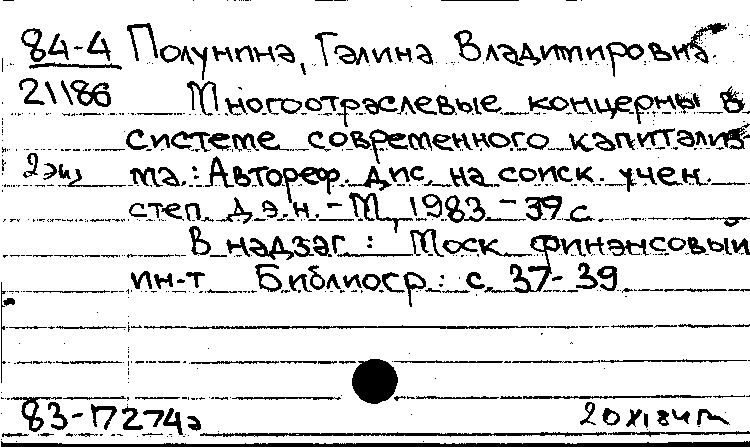 84-4 Полунина, Галина Владимировна.
21186 Многоотраслевые концерны в
системе современного капитализ-
2 экз ма.: Автореф. дис. на соиск. учен.
степ. д.э.н. - М, 1983 - 39 с.
В надзаг.: Моск финансовый
ин-т Библиогр.: с. 37-39
83-17274э